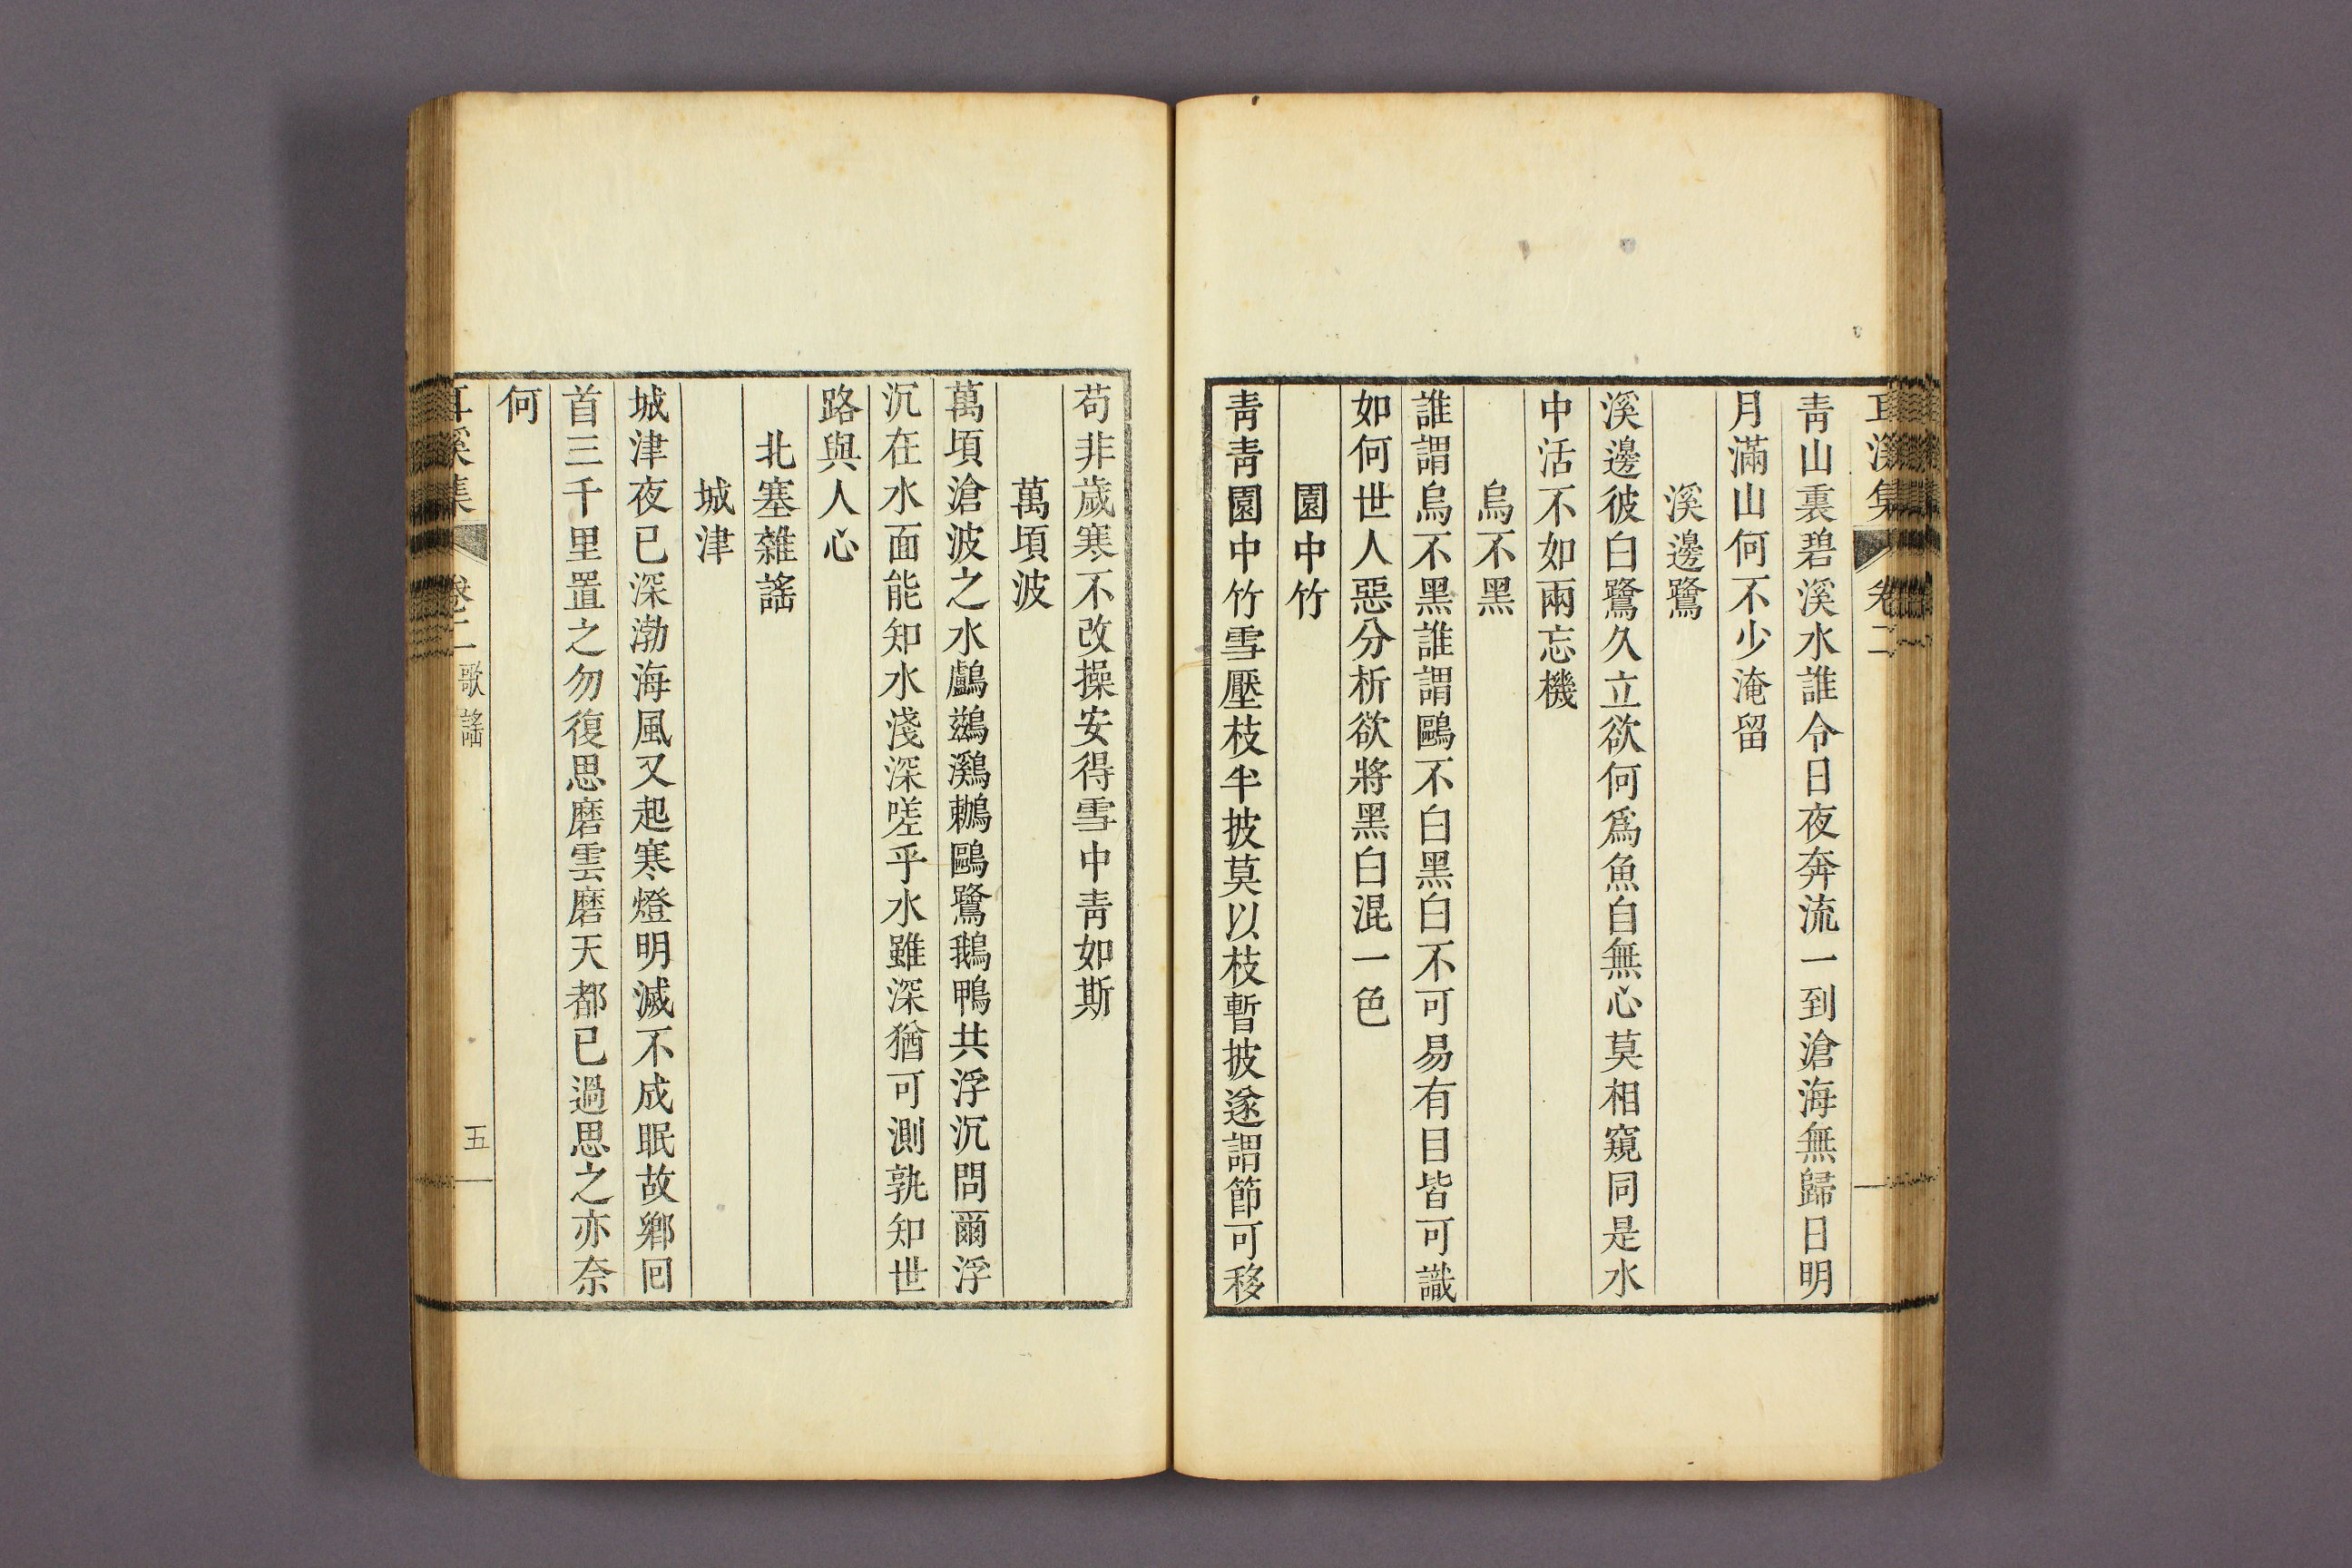 耳溪集 卷二
青山裏碧溪水誰令日夜奔流一到滄海無歸日明
月滿山何不少淹留
溪邊鷺
溪邊彼白鷺久立欲何爲魚自無心莫相窺同是水
中活不如兩忘機
烏不黑
誰謂烏不黑誰謂鷗不白黑白不可易有目皆可識
如何世人惡分析欲將黑白混一色
園中竹
靑靑園中竹雪壓枝半披莫以枝暫披遂謂節可移
苟非歲寒不改操安得雪中靑如斯
萬頃波
萬頃滄波之水鸕鷀鸂鶒鷗鷺鵝鴨共浮沉問爾浮
沉在水面能知水淺深嗟乎水雖深猶可測孰知世
路與人心
北塞雜謠
城津
城津夜已深渤海風又起寒燈明滅不成眠故鄕回
首三千里置之勿復思磨雲磨天都已過思之亦奈
何
耳溪集 卷二 歌謠 五